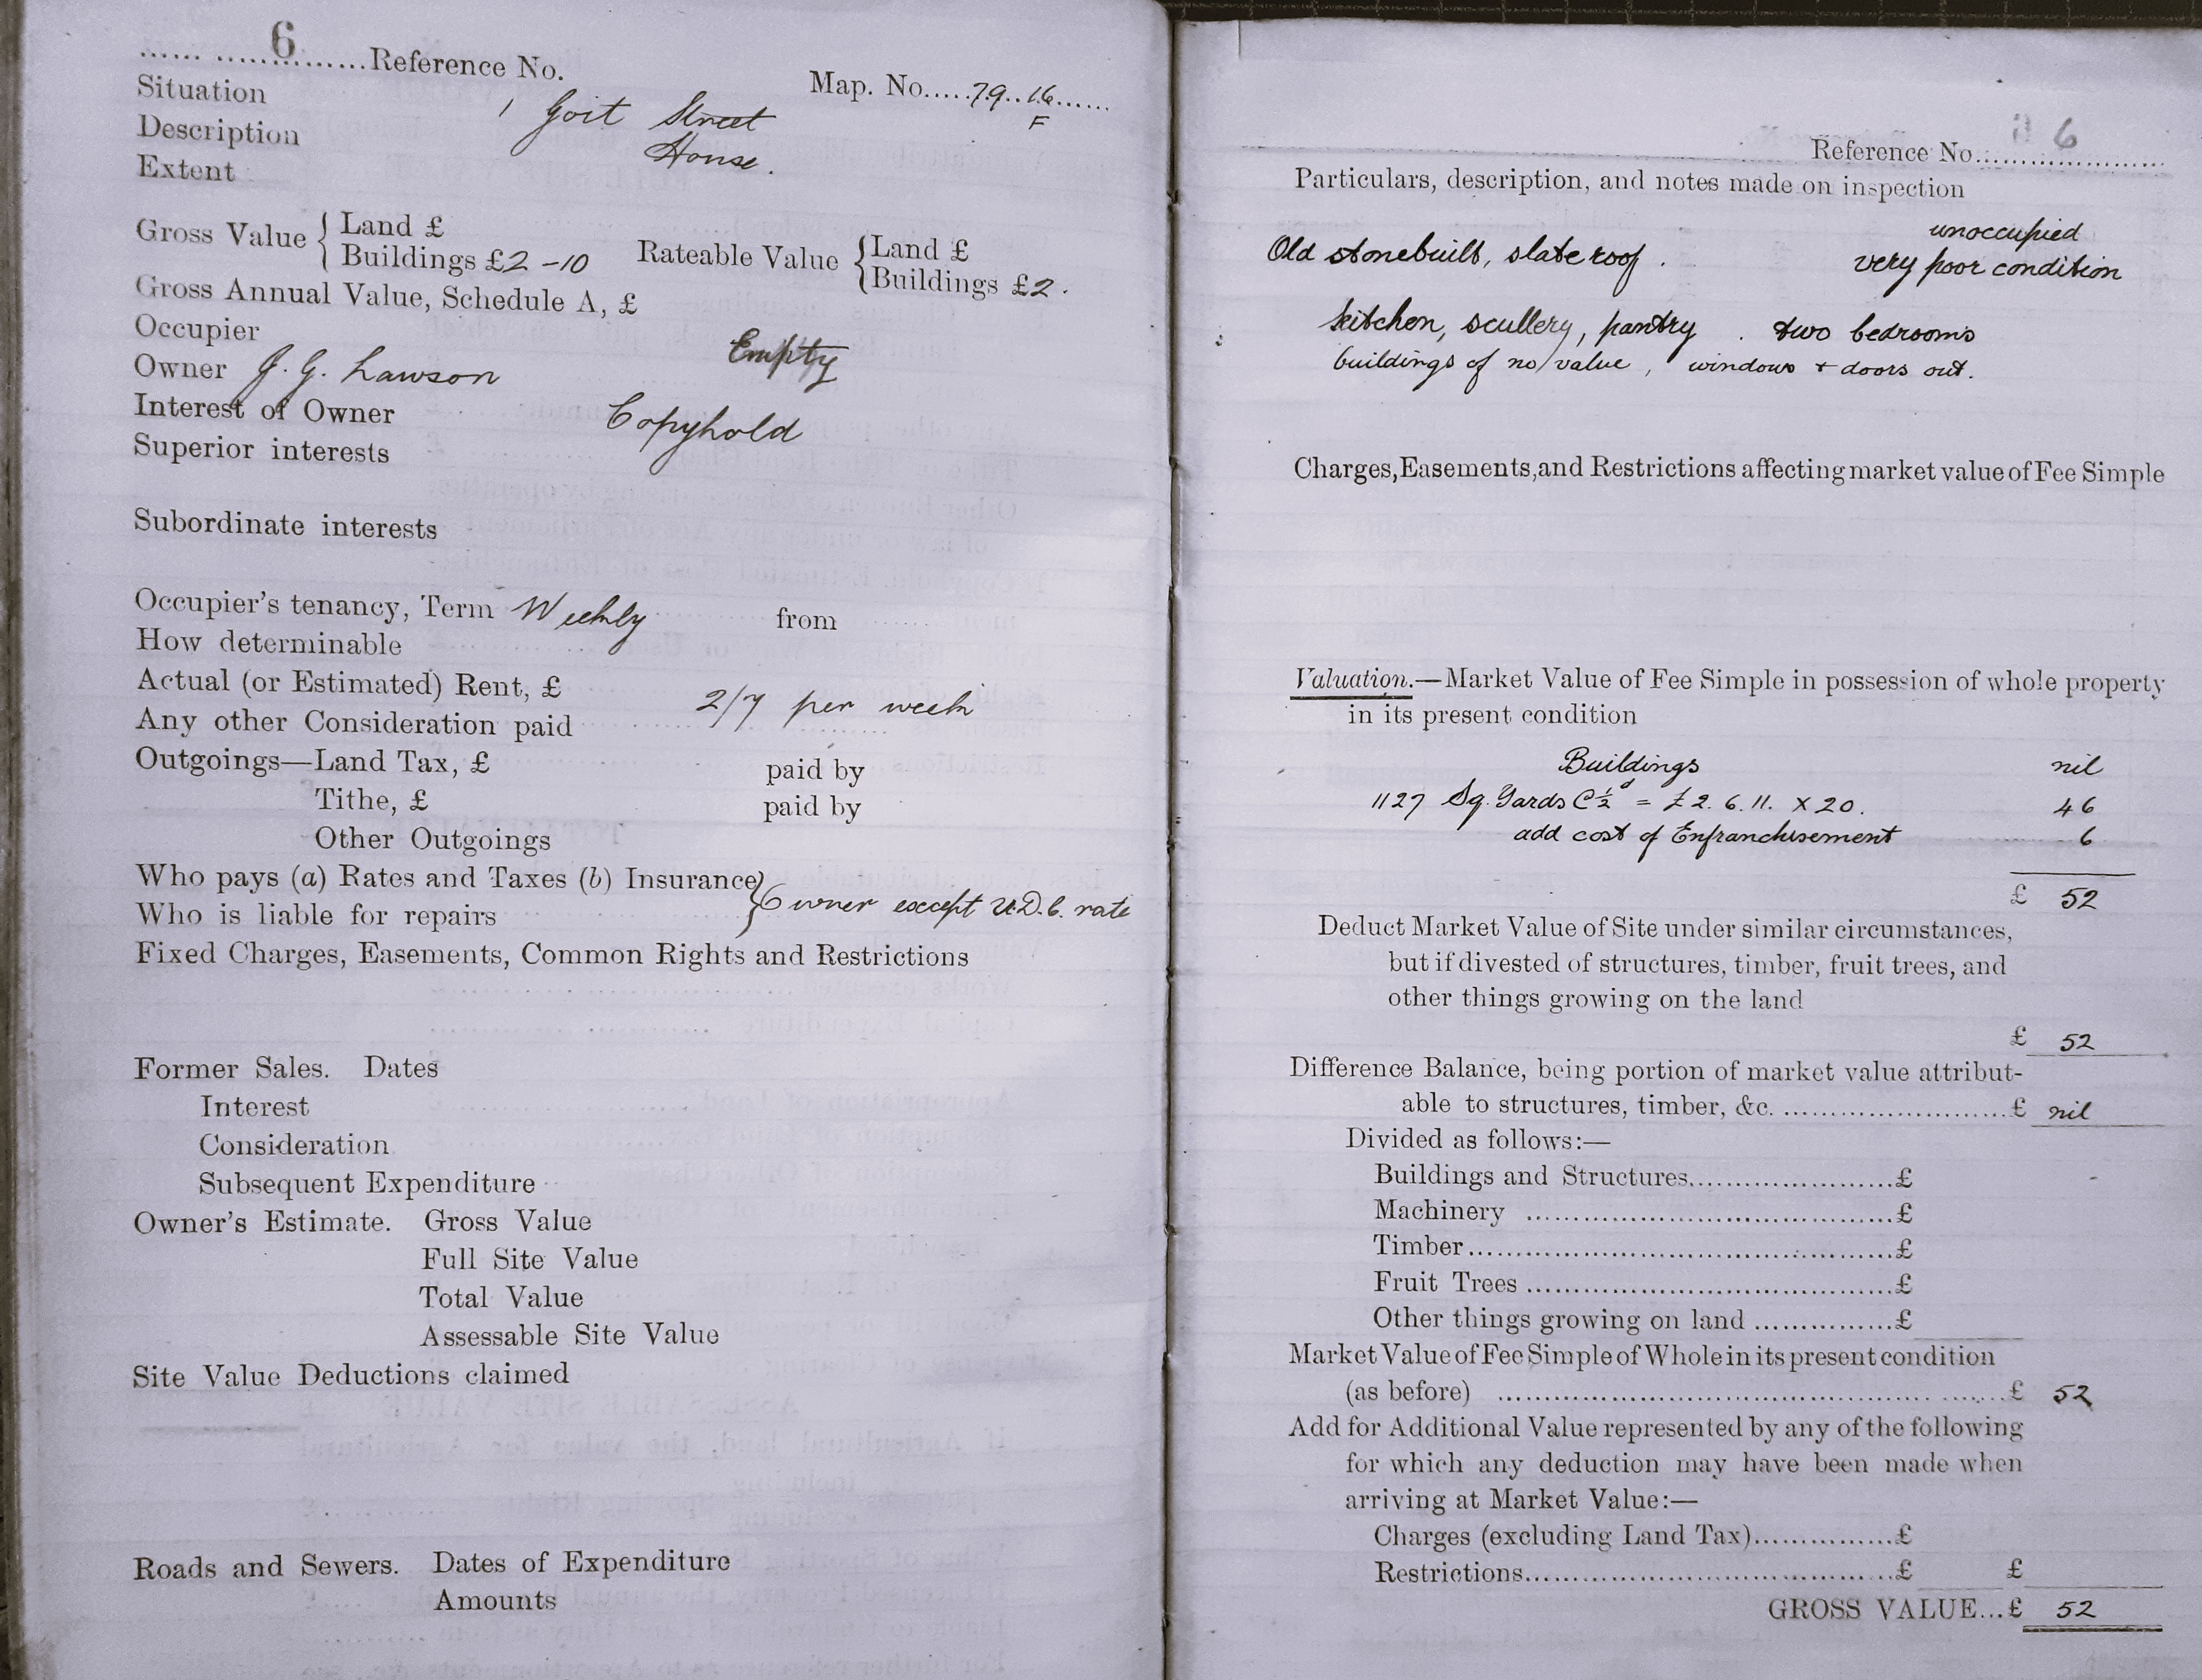 6
...... ..............Reference No.
Map. No.....79..16......
F
Situation
1 Goit Street
Description
House.
Extent
Gross Value { Land £
Buildings £2-10
Rateable Value { Land £
Buildings £2.
Gross Annual Value, Schedule A, £
Occupier Empty
Owner J. G. Lawson
Interest of Owner Copyhold
Superior interests
Subordinate interests
Occupier's tenancy, Term Weekly from
How determinable
Actual (or Estimated) Rent, £ 2/7 per week
Any other Consideration paid
Outgoings—Land Tax, £ paid by
Tithe, £ paid by
Other Outgoings
Who pays (a) Rates and Taxes (b) Insurance }
Who is liable for repairs } Owner except U.D.C. rate
Fixed Charges, Easements, Common Rights and Restrictions
Former Sales. Dates
Interest
Consideration
Subsequent Expenditure
Owner's Estimate. Gross Value
Full Site Value
Total Value
Assessable Site Value
Site Value Deductions claimed
Roads and Sewers. Dates of Expenditure
Amounts
Reference No. 6
Particulars, description, and notes made on inspection
unoccupied
Old stonebuilt, slate roof. very poor condition
kitchen, scullery, pantry . two bedrooms
buildings of no value, windows + doors out.
Charges, Easements, and Restrictions affecting market value of Fee Simple
Valuation.—Market Value of Fee Simple in possession of whole property
in its present condition
Buildings nil
1127 Sq. Yards @ ½d = £2. 6. 11. x 20. 46
add cost of Enfranchisement 6
£ 52
Deduct Market Value of Site under similar circumstances,
but if divested of structures, timber, fruit trees, and
other things growing on the land
£ 52
Difference Balance, being portion of market value attribut-
able to structures, timber, &c. ........................£ nil
Divided as follows:—
Buildings and Structures......................£
Machinery ......................................£
Timber............................................£
Fruit Trees ......................................£
Other things growing on land ...............£
Market Value of Fee Simple of Whole in its present condition
(as before) ......................................................£ 52
Add for Additional Value represented by any of the following
for which any deduction may have been made when
arriving at Market Value:—
Charges (excluding Land Tax)...............£
Restrictions.......................................£ £
GROSS VALUE...£ 52